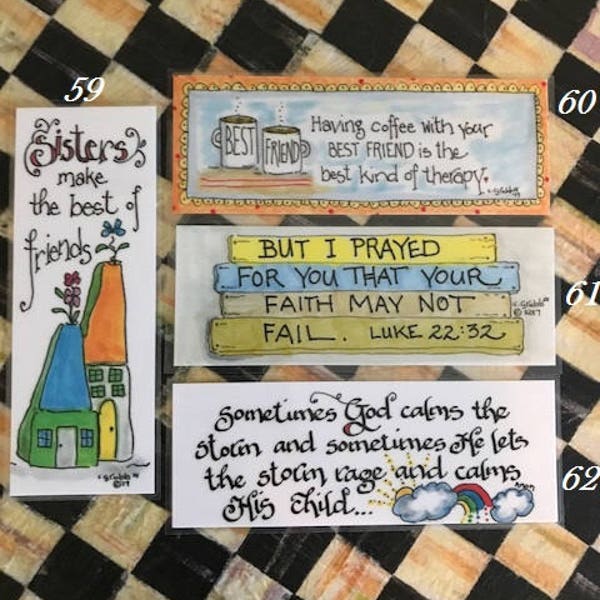 59
Sisters
make
the best of
friends
60
BEST FRIEND
Having coffee with your
BEST FRIEND is the
best kind of therapy.
BUT I PRAYED
FOR YOU THAT YOUR
FAITH MAY NOT
FAIL. LUKE 22:32
© 2017
61
Sometimes God calms the
storm and sometimes He lets
the storm rage and calms
His child...
62